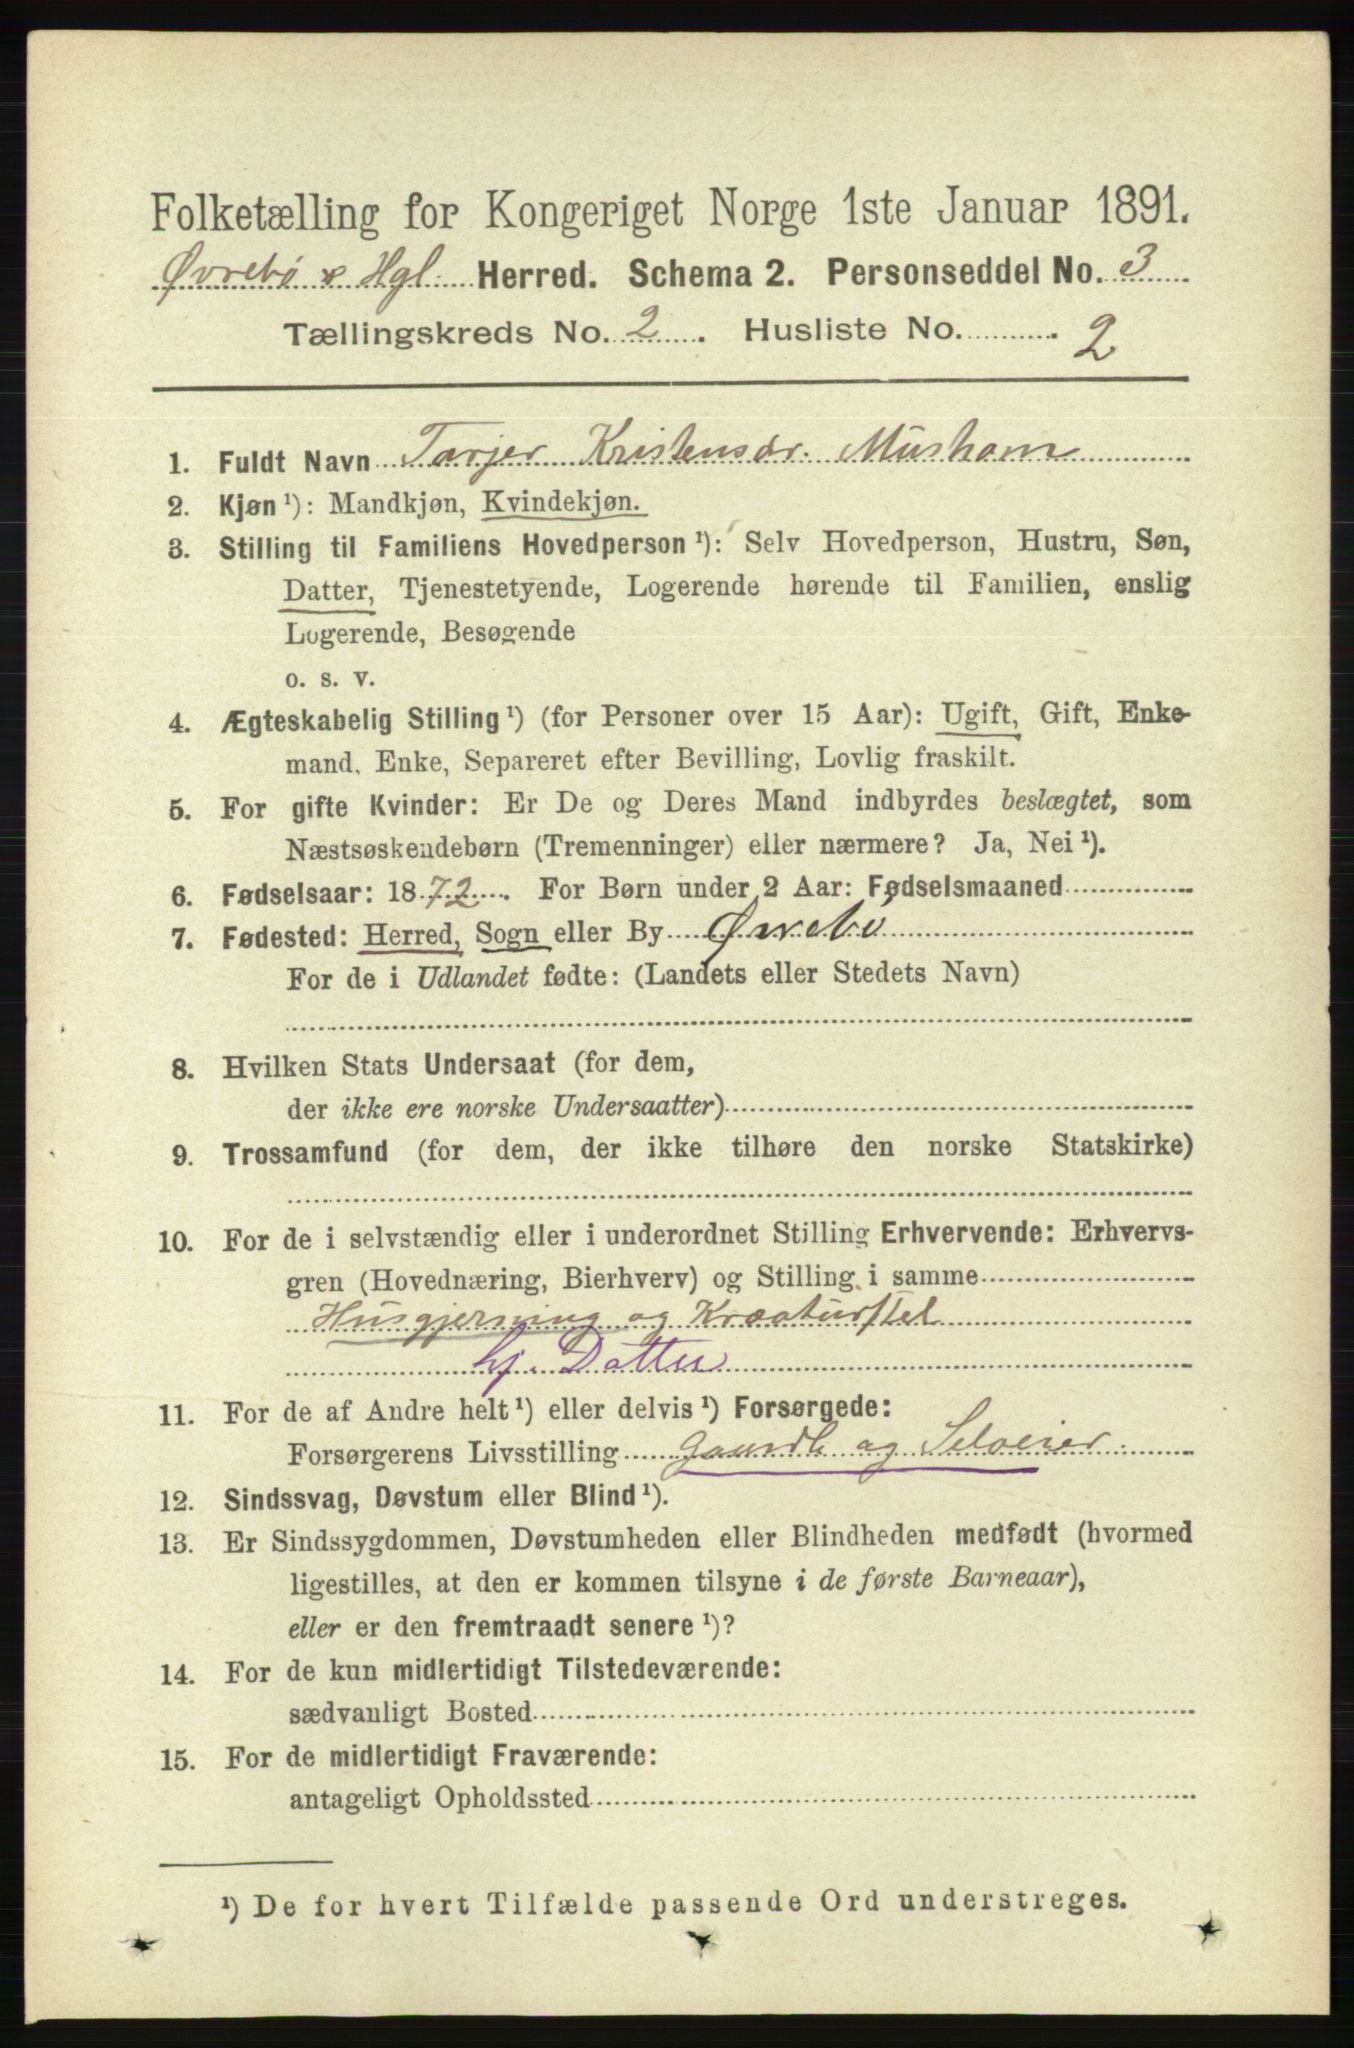 Folketælling for Kongeriget Norge 1ste Januar 1891.
Øvrebø & Hgl. Herred. Schema 2. Personseddel No. 3
Tællingskreds No. 2. Husliste No. 2
1. Fuldt Navn Tarjer Kristensdr. Musham
2. Kjøn ¹): Mandkjøn, Kvindekjøn.
3. Stilling til Familiens Hovedperson ¹): Selv Hovedperson, Hustru, Søn,
Datter, Tjenestetyende, Logerende hørende til Familien, enslig
Logerende, Besøgende
o. s. v.
4. Ægteskabelig Stilling ¹) (for Personer over 15 Aar): Ugift, Gift, Enke-
mand, Enke, Separeret efter Bevilling, Lovlig fraskilt.
5. For gifte Kvinder: Er De og Deres Mand indbyrdes beslægtet, som
Næstsøskendebørn (Tremenninger) eller nærmere? Ja, Nei ¹).
6. Fødselsaar: 1872. For Børn under 2 Aar: Fødselsmaaned
7. Fødested: Herred, Sogn eller By Øvrebö
For de i Udlandet fødte: (Landets eller Stedets Navn)
8. Hvilken Stats Undersaat (for dem,
der ikke ere norske Undersaatter)
9. Trossamfund (for dem, der ikke tilhøre den norske Statskirke)
10. For de i selvstændig eller i underordnet Stilling Erhvervende: Erhvervs-
gren (Hovednæring, Bierhverv) og Stilling i samme
Husgjerning og Kreaturstel
hj. Datter
11. For de af Andre helt ¹) eller delvis ¹) Forsørgede:
Forsørgerens Livsstilling Gaardb og Selveier.
12. Sindssvag, Døvstum eller Blind ¹).
13. Er Sindssygdommen, Døvstumheden eller Blindheden medfødt (hvormed
ligestilles, at den er kommen tilsyne i de første Barneaar),
eller er den fremtraadt senere ¹)?
14. For de kun midlertidigt Tilstedeværende:
sædvanligt Bosted
15. For de midlertidigt Fraværende:
antageligt Opholdssted
¹) De for hvert Tilfælde passende Ord understreges.